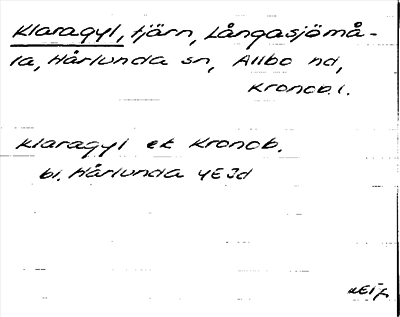 Klaragyl, tjärn, Långasjömå-
la, Hårlunda sn, Allbo hd,
Kronob. l.
Klaragyl ek Kronob.
bl. Hårlunda 4E Jd